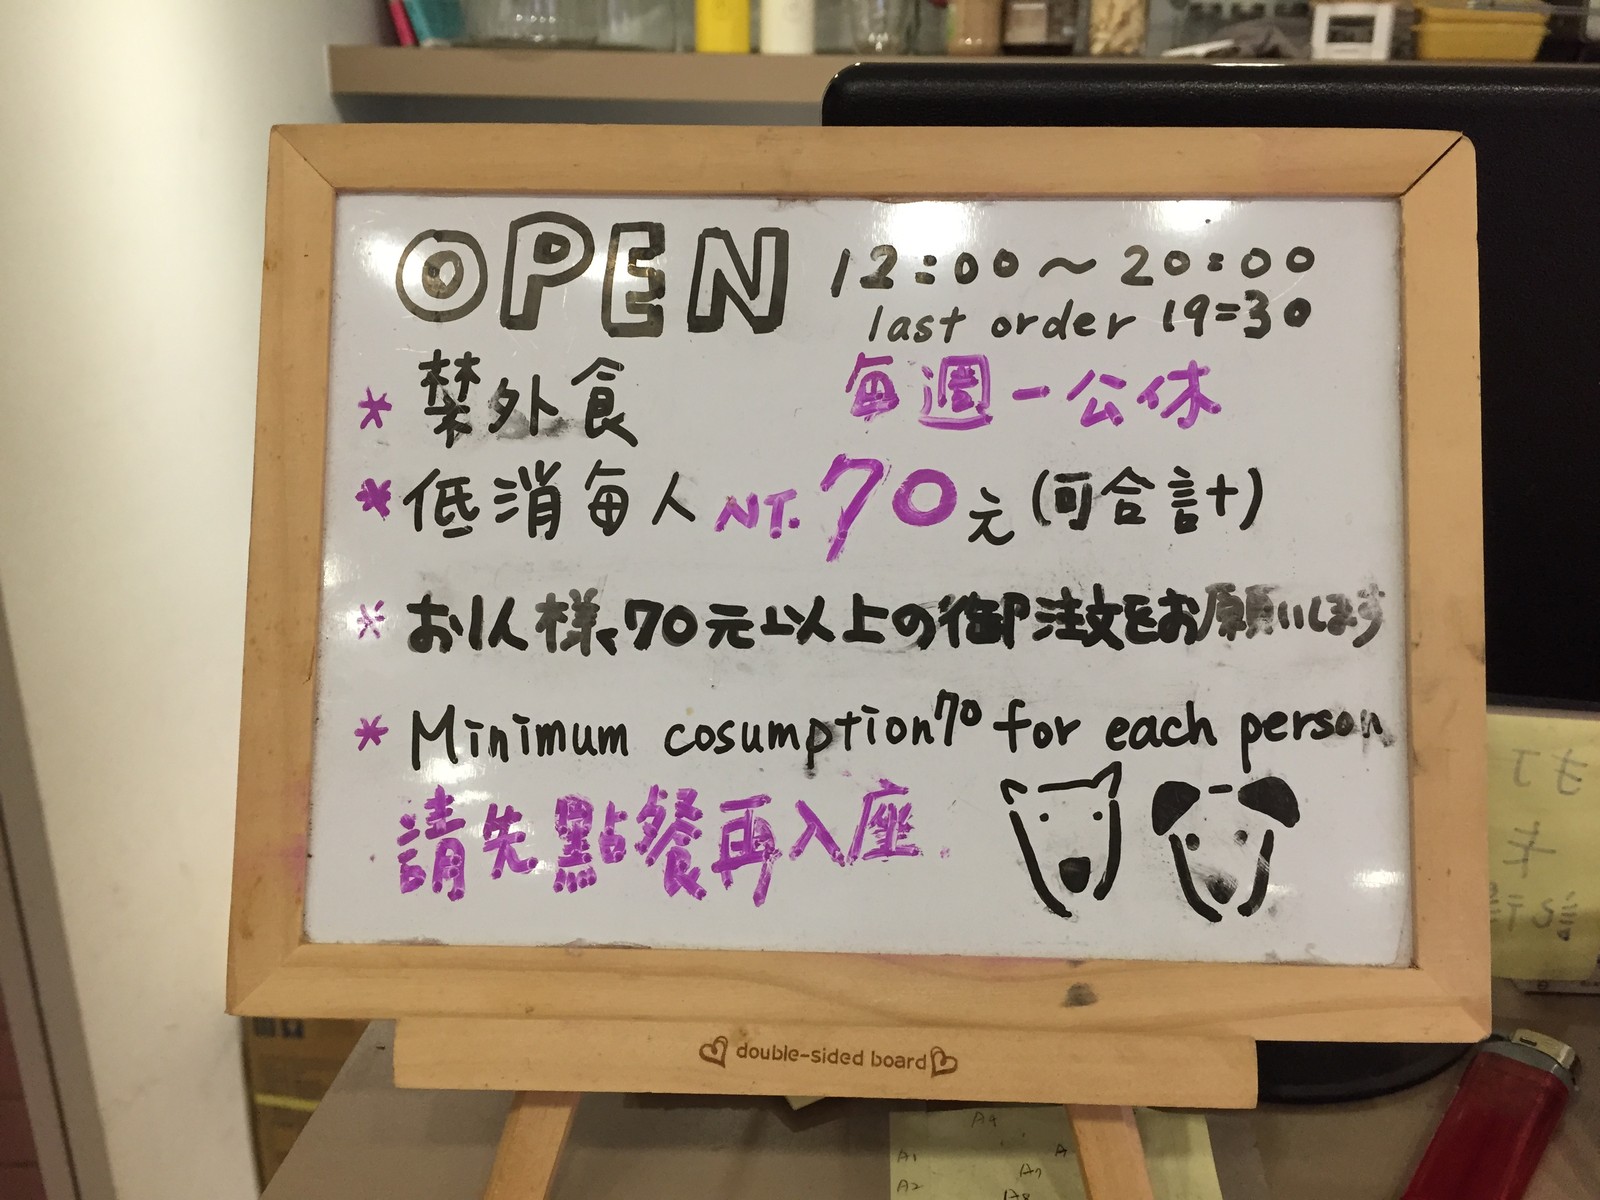 OPEN 12:00～20:00
last order 19:30
* 禁外食 每週一公休
* 低消每人 NT. 70元 (可合計)
* お1人様、70元以上の御注文をお願いします
* Minimum cosumption 70 for each person
請先點餐再入座
double-sided board
A9
A1
A
A7
A2
A8